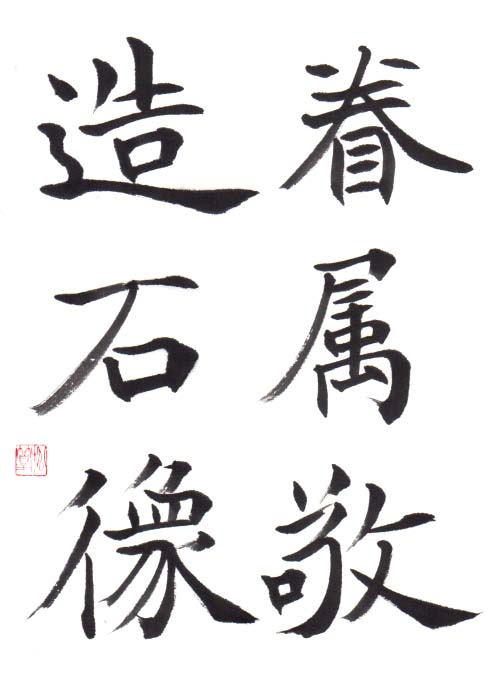 眷属敬
造石像